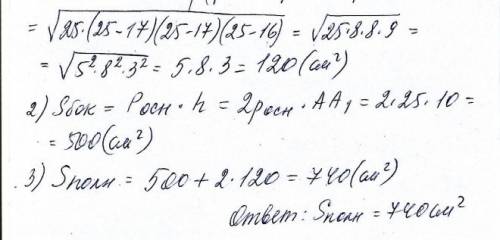 = √25·(25-17)(25-17)(25-16) = √25·8·8·9 =
= √5²·8²·3² = 5·8·3 = 120 (см²)
2) Sбок = Pосн · h = 2pосн · AA₁ = 2·25·10 =
= 500 (см²)
3) Sполн = 500 + 2·120 = 740 (см²)
Ответ: Sполн = 740 см²